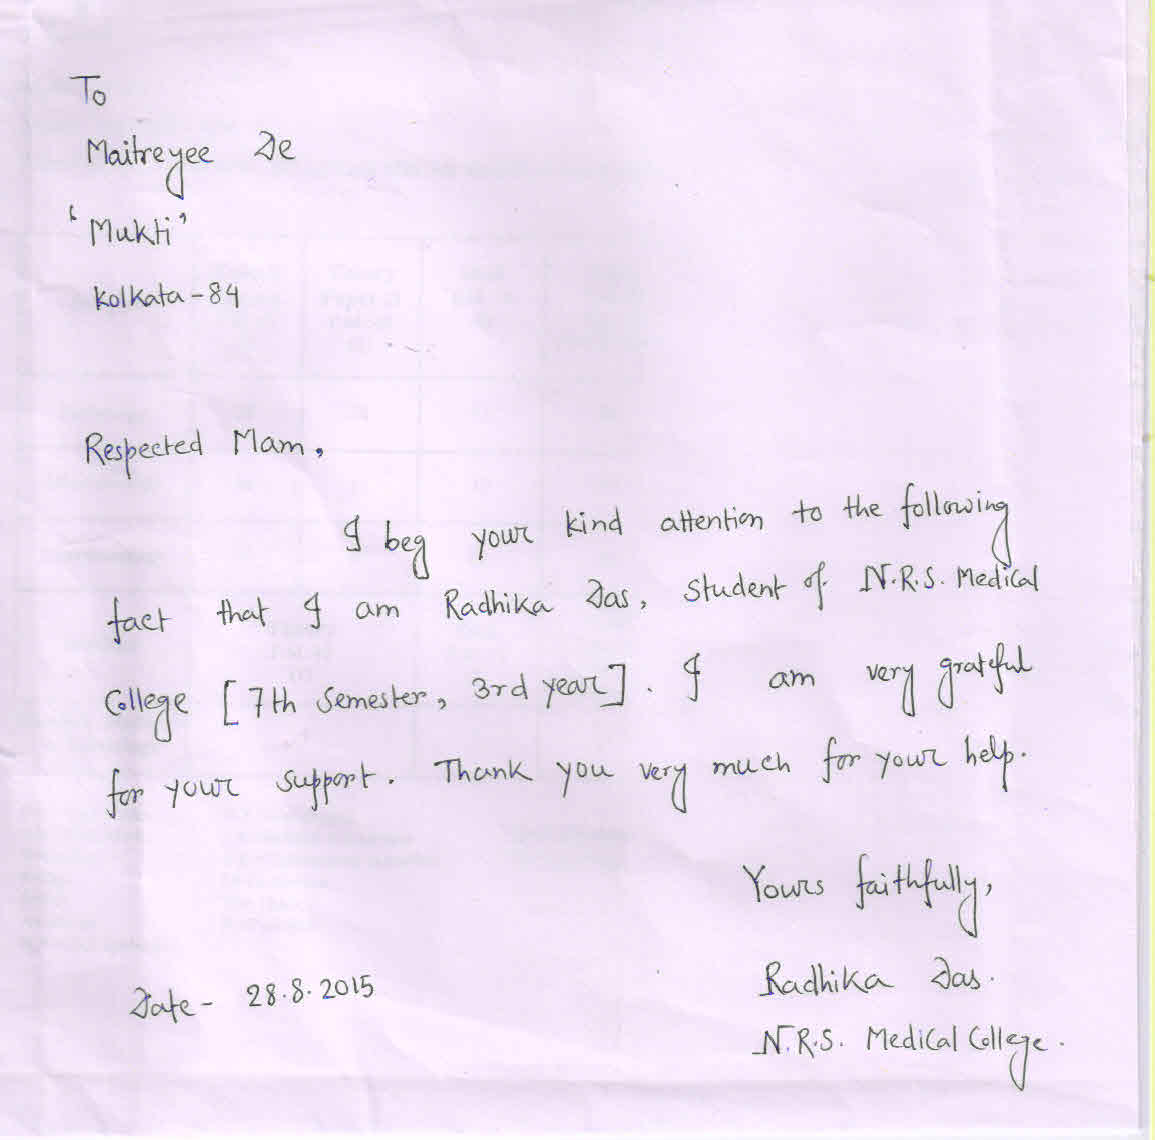 To
Maitreyee De
'Mukti'
Kolkata - 84
Respected Mam,
I beg your kind attention to the following
fact that I am Radhika Das, Student of N.R.S. Medical
College [7th Semester, 3rd year]. I am very grateful
for your support. Thank you very much for your help.
Yours faithfully,
Radhika Das.
Date - 28.8.2015
N.R.S. Medical College.